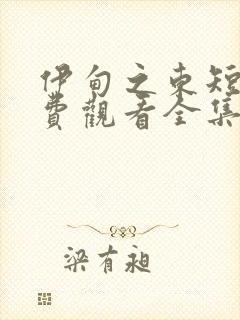 伊甸之東短
費觀看全集
梁有昶